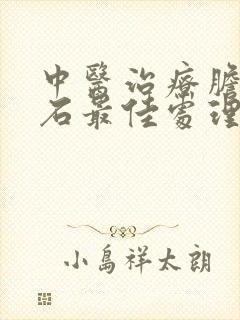 中醫治療膽
石最佳處理
小島祥太朗